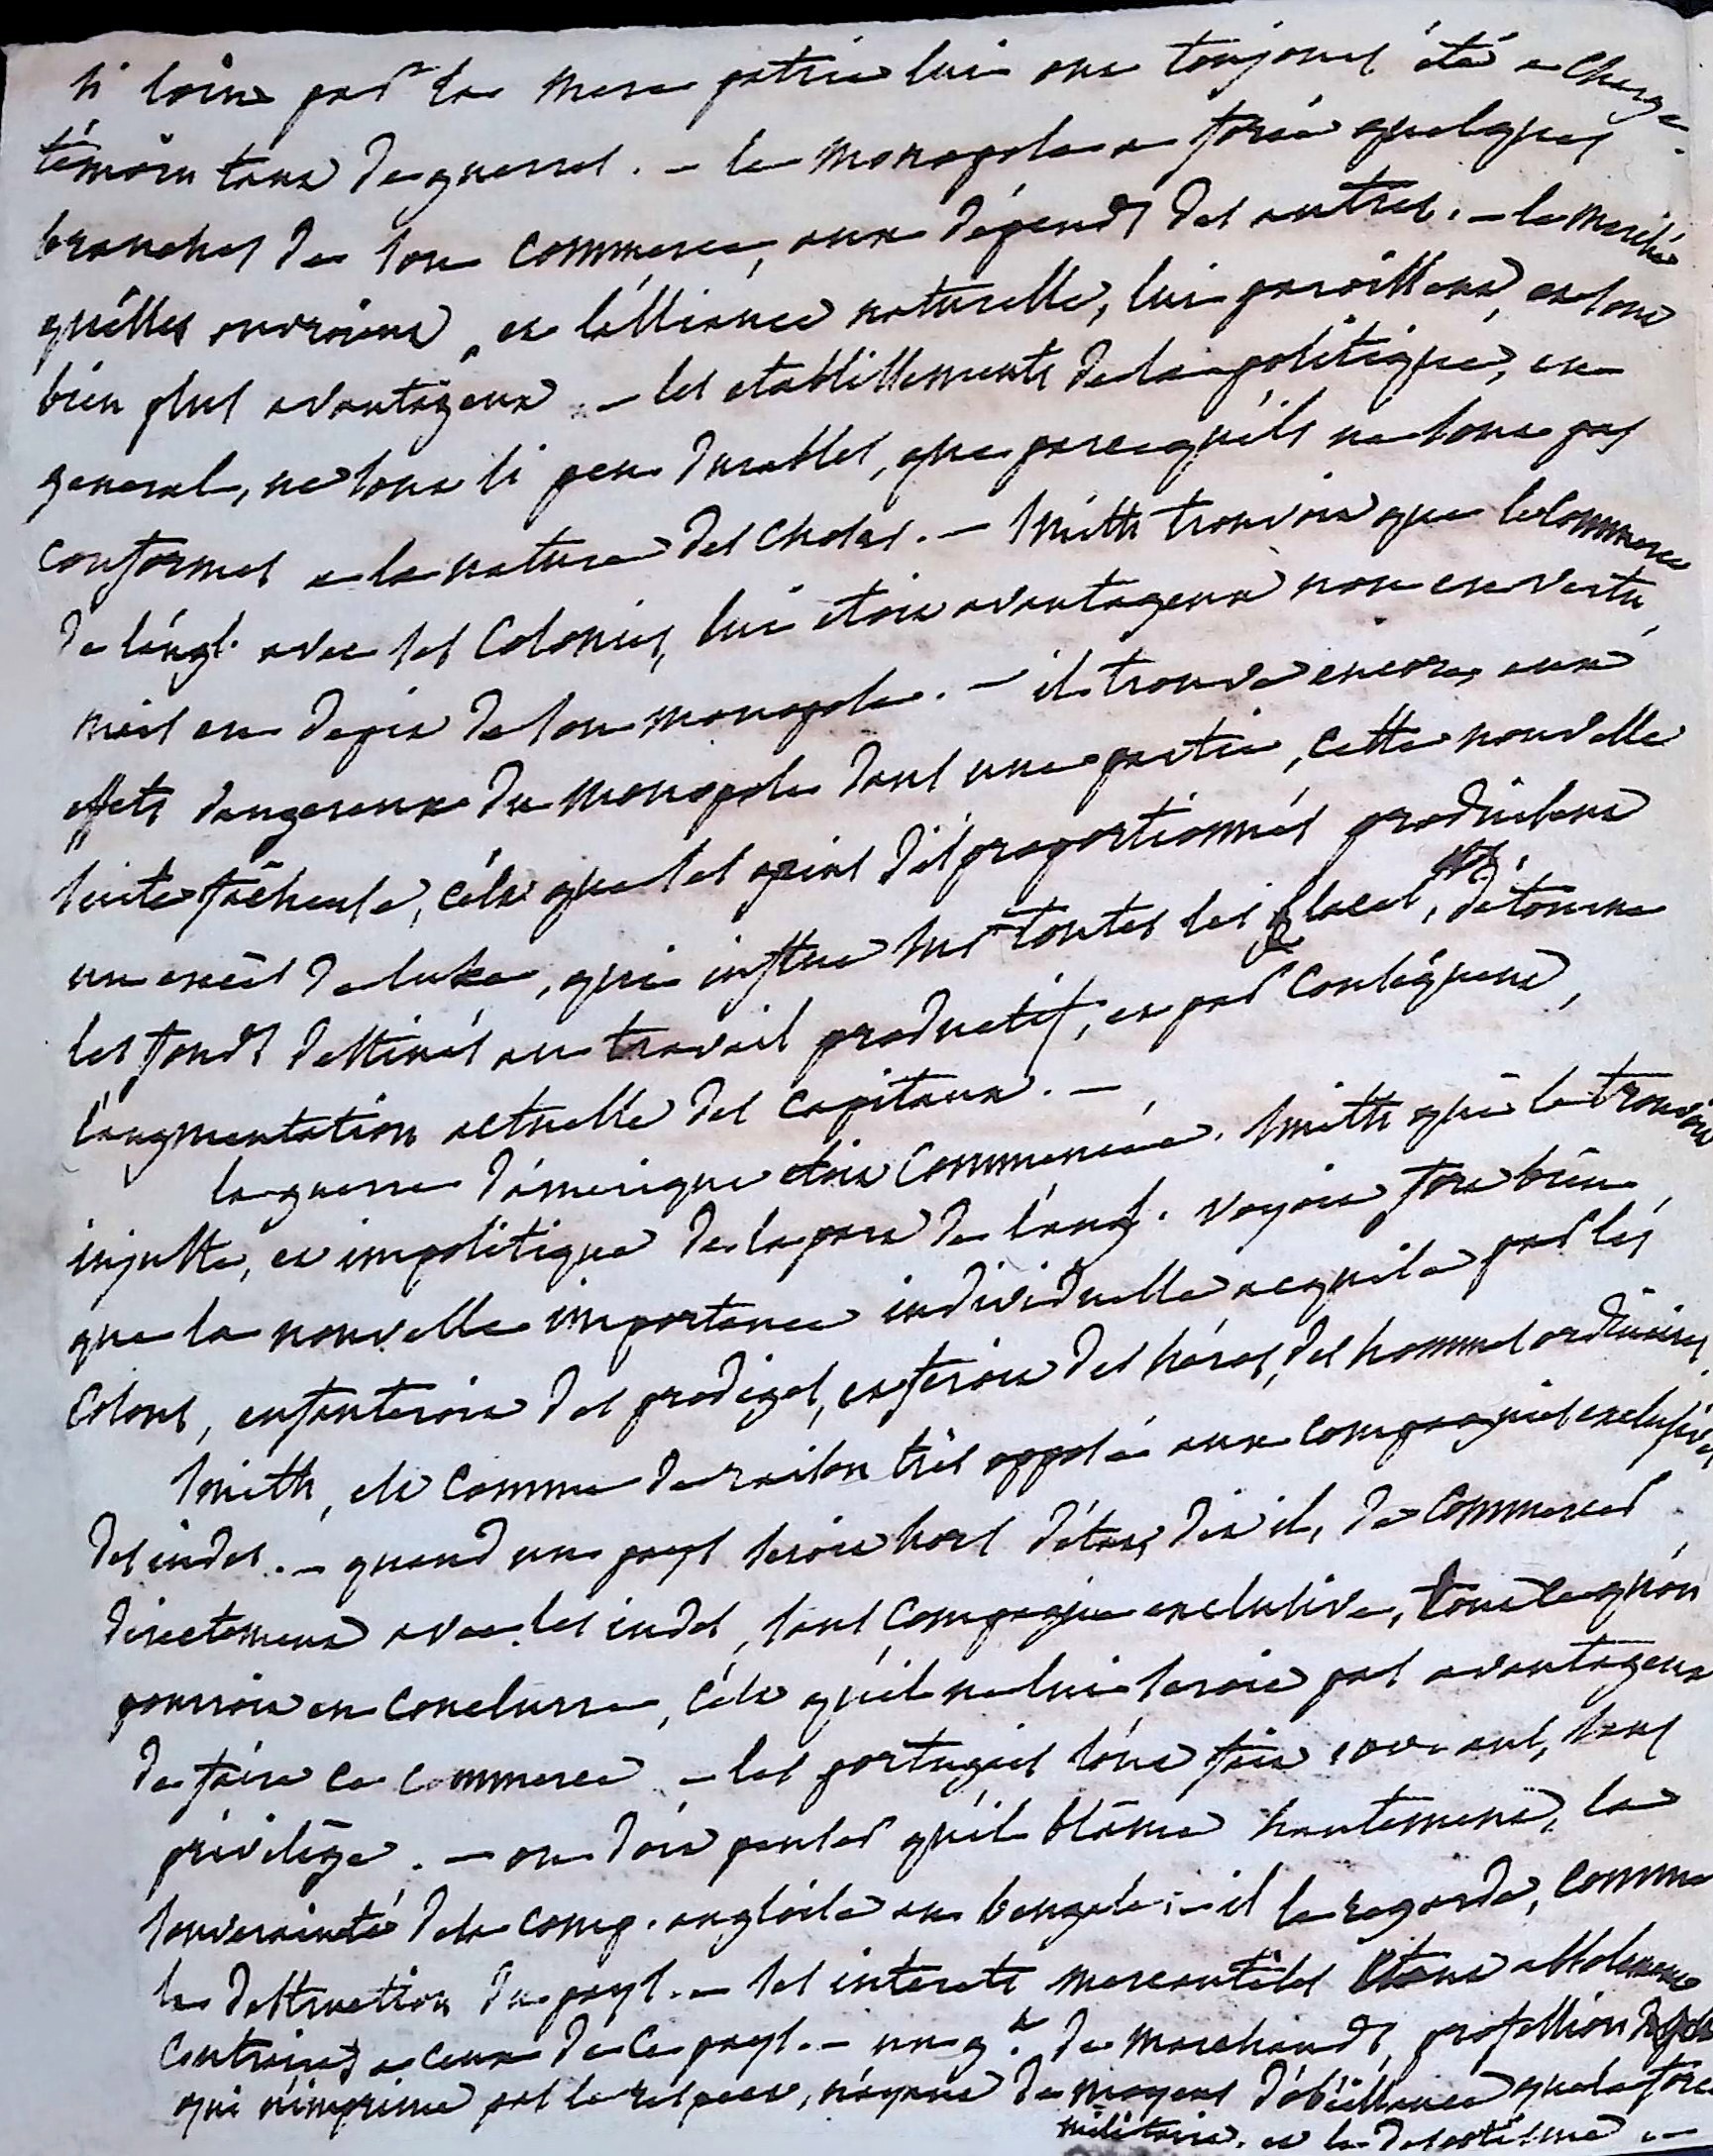 si loin par la mere patrie lui ont toujours été a charge
témoin tant de guerres. – le monopole a forcé quelques
branches de son commerce, aux dépends des autres. – le marché
qu'elles ouvroient, et l'alliance naturelle, lui paroissent, et sont
bien plus avantageux – les etablissements de la politique, en
general, ne sont si peu durables, que parce qu'ils ne sont pas
conformes a la nature des choses. – Smith trouvoit que le commerce
de l'angl. avec ses colonies, lui etoit avantageux non en vertu,
mais en depit de son monopole. – il trouve encore, aux
effets dangereux du monopole dans une partie, cette nouvelle
suite fâcheuse, c'est que les gains disproportionnés produisent
un excès de luxe, qui influe sur toutes les places, détourne
les fonds destinés au travail productif, et par conséquent,
l'augmentation actuelle des capitaux. –
la guerre d'amerique etoit commencée. Smith qui la trouvoit
injuste, et impolitique de la part de l'angl. voyoit fort bien
que la nouvelle importance individuelle acquise par les
colons, enfanteroit des prodiges, et feroit des héros, des hommes ordinaires.
Smith, est comme de raison très opposé aux compagnies exclusives
des indes. – quand un pays seroit hors d'état, dit il, de commercer
directement avec les indes, sans compagnie exclusive, tout ce qu'on
pourroit en conclurre, c'est qu'il ne lui seroit pas avantageux
de faire ce commerce – les portugais l'ont fait ans, sans
privilège. – on doit penser qu'il blâme hautement, la
souveraineté de la comp. angloise au bengale; – il la regarde, comme
la destruction du pays. – les interets mercantiles etant absolument
contraires a ceux de ce pays. – un g.t de marchands, profession
qui n'imprime pas le respect, n'ayant de moyens d'obéissance que la force
militaire, et le despotisme –